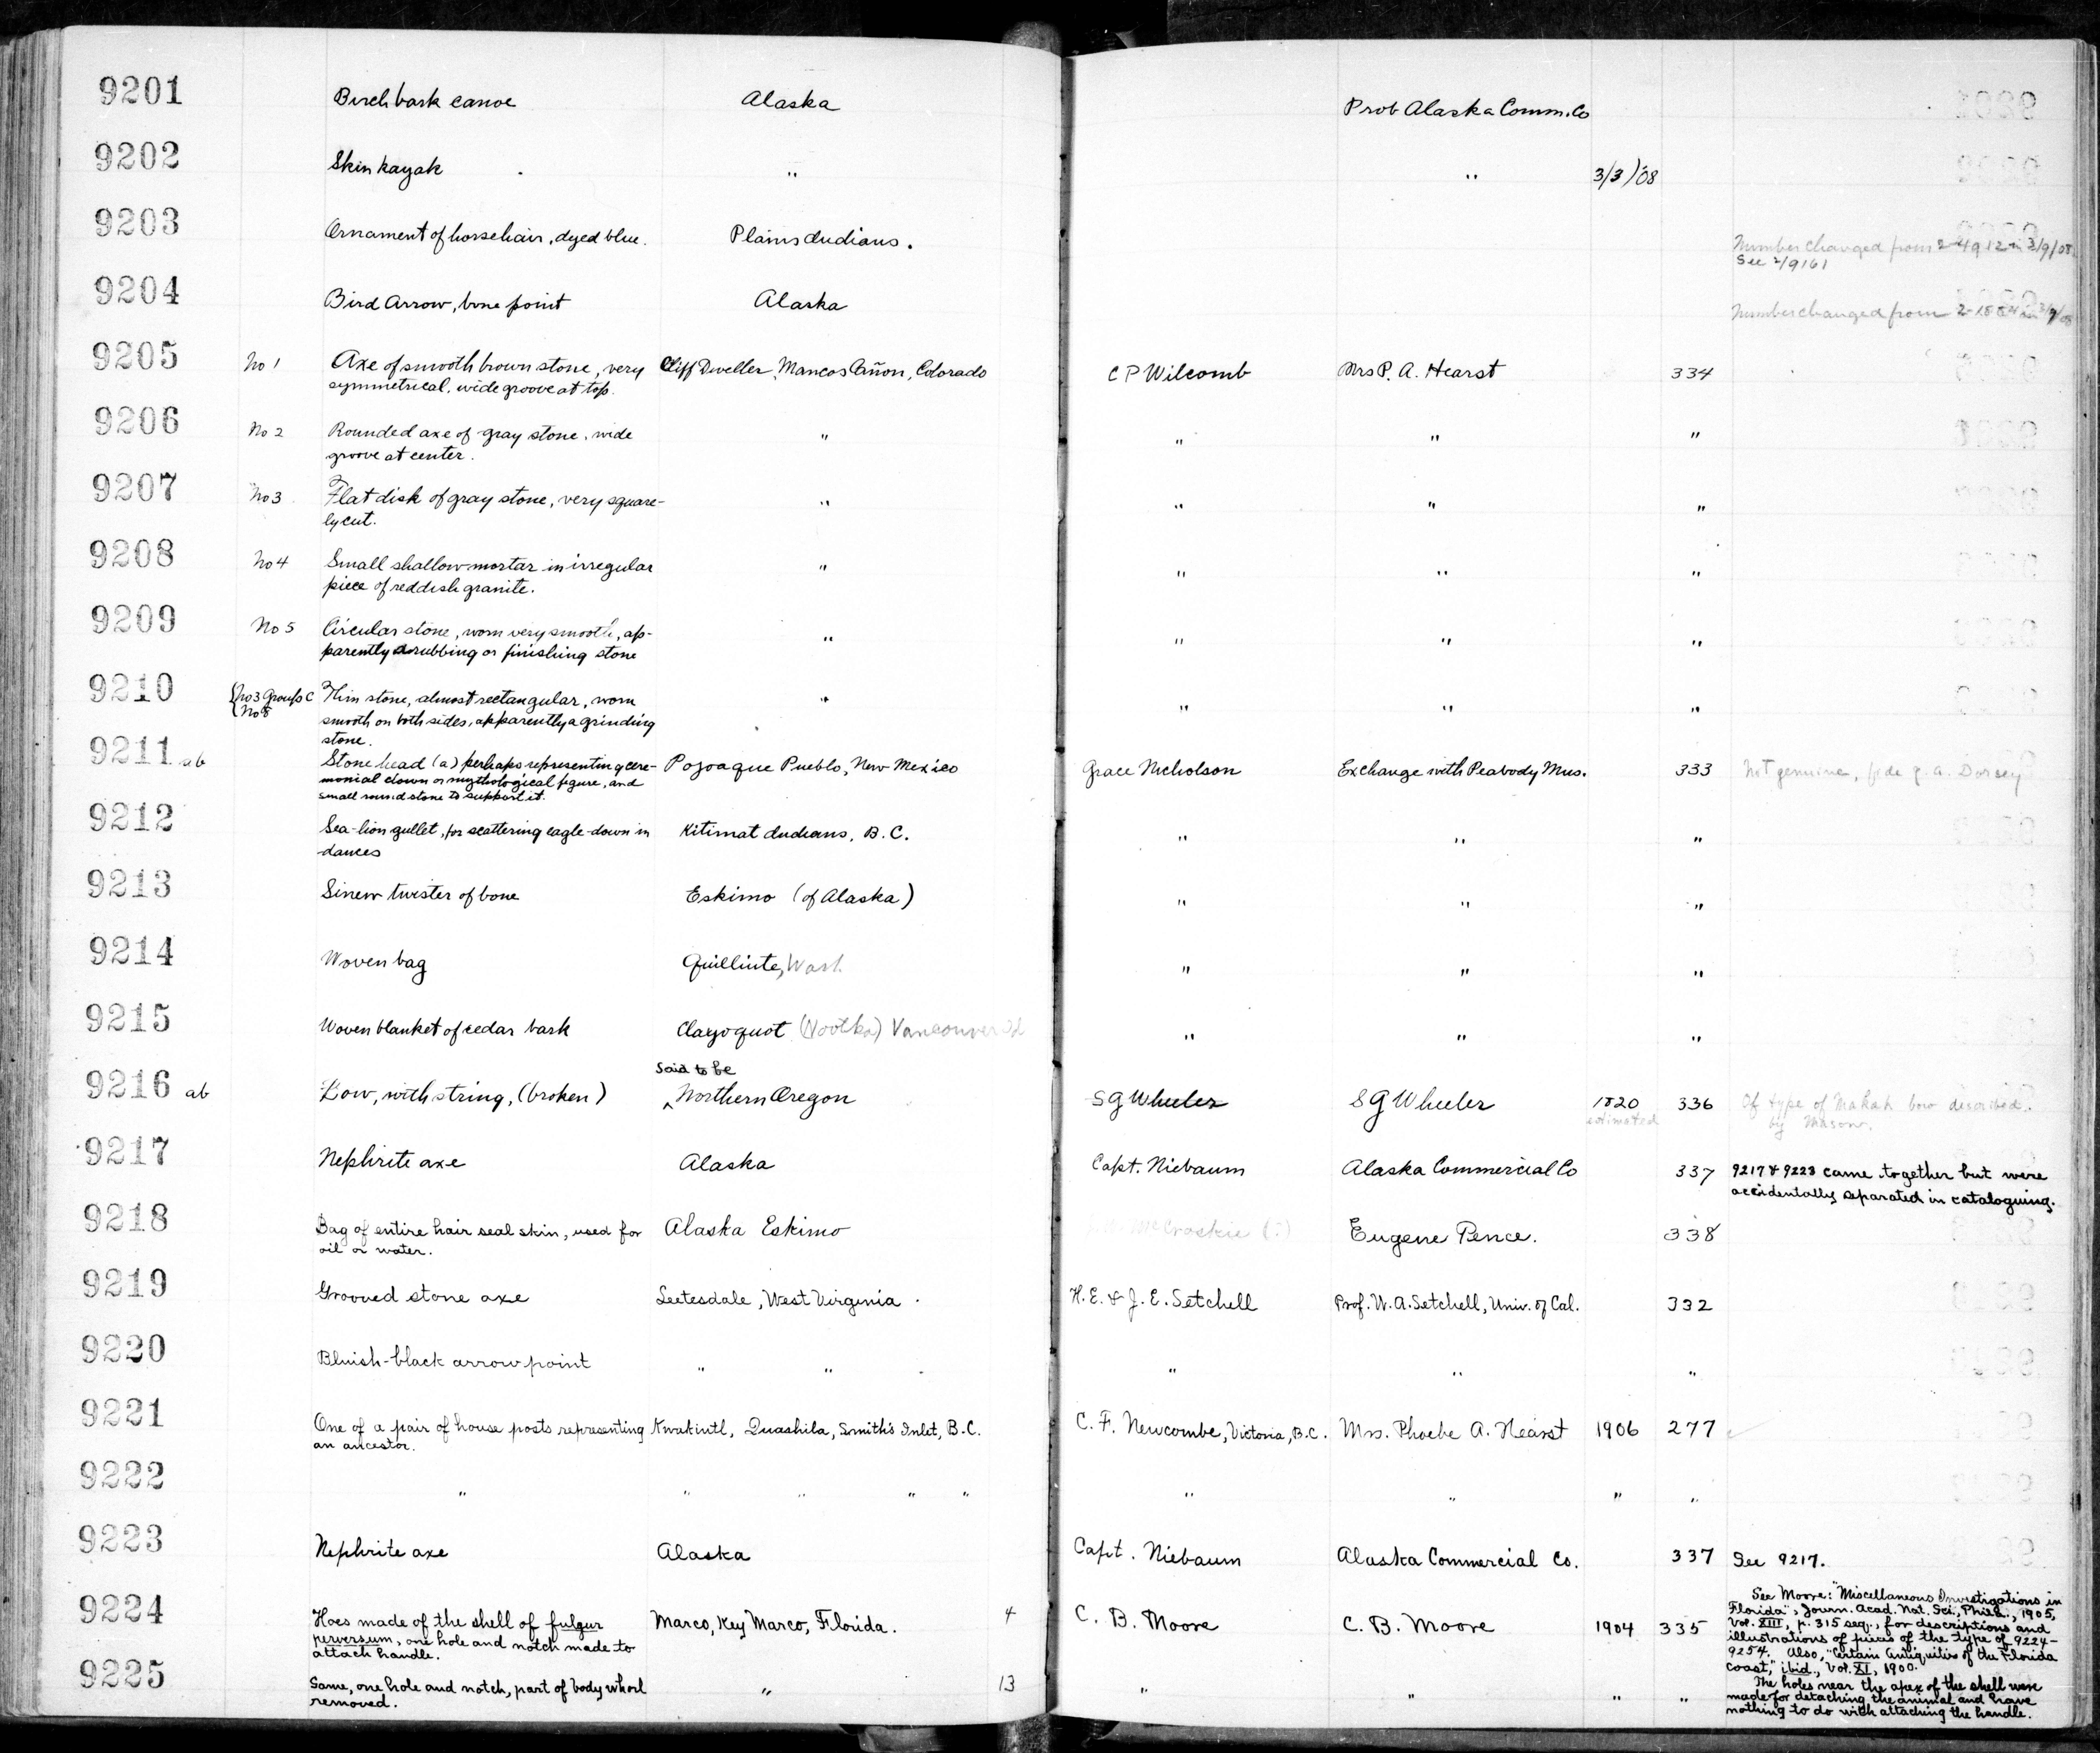 9201 Birchbark canoe Alaska Prob Alaska Comm. Co
9202 Skin kayak " " 3/3/'08
9203 Ornament of horsehair, dyed blue. Plains Indians. Number changed from 2-4912 in 3/9/08.
See 2/9161
9204 Bird Arrow, bone point Alaska Number changed from
9205 No 1 Axe of smooth brown stone, very Cliff Dweller, Mancos Cañon, Colorado C P Wilcomb Mrs P. A. Hearst 334
symmetrical, wide groove at top.
9206 No 2 Rounded axe of gray stone, wide " " " "
groove at center.
9207 No 3 Flat disk of gray stone, very square- " " " "
ly cut.
9208 No 4 Small shallow mortar in irregular " " " "
piece of reddish granite.
9209 No 5 Circular stone, worn very smooth, ap- " " " "
parently a rubbing or finishing stone
9210 {No 3 Group C Thin stone, almost rectangular, worn " " " "
No 8 smooth on both sides, apparently a grinding
stone.
9211 ab Stone head (a) perhaps representing cere- Pojoaque Pueblo, New Mexico Grace Nicholson Exchange with Peabody Mus. 333 Not genuine, fide G. A. Dorsey
monial clown or mythological figure, and
small round stone to support it.
9212 Sea-lion gullet, for scattering eagle-down in Kitimat Indians, B.C. " " "
dances
9213 Sinew twister of bone Eskimo (of Alaska) " " "
9214 Woven bag Quilliute, Wash " " "
9215 Woven blanket of cedar bark Clayoquot (Nootka) Vancouver Id " " "
said to be
9216 ab Bow, with string, (broken) ^Northern Oregon S G Wheeler S G Wheeler 1820 336 Of type of Makah bow described
estimated by Mason.
9217 Nephrite axe Alaska Capt. Niebaum Alaska Commercial Co 337 9217 & 9223 came together but were
accidentally separated in cataloguing.
9218 Bag of entire hair seal skin, used for Alaska Eskimo McCroskie (?) Eugene Pence. 338
oil or water.
9219 Grooved stone axe Leetesdale, West Virginia H. E. & J. E. Setchell Prof. W. A. Setchell, Univ. of Cal. 332
9220 Bluish-black arrow point " " " " "
9221 One of a pair of house posts representing Kwakiutl, Quashila, Smith's Inlet, B.C. C. F. Newcombe, Victoria, B.C. Mrs. Phoebe A. Hearst 1906 277
an ancestor.
9222 " " " " " " " " "
9223 Nephrite axe Alaska Capt. Niebaum Alaska Commercial Co. 337 See 9217.
9224 Hoes made of the shell of fulgur Marco, Key Marco, Florida. 4 C. B. Moore C. B. Moore 1904 335 See Moore: "Miscellaneous Investigations in
perversum, one hole and notch made to Florida", Journ. Acad. Nat. Sci., Phila., 1905,
attach handle. Vol. XIII, p. 315 seq., for descriptions and
illustrations of pieces of the type of 9224-
9254. Also, "Certain Antiquities of the Florida
coast," ibid., Vol. XI, 1900.
9225 Same, one hole and notch, part of body whorl " 13 " " " " The holes near the apex of the shell were
removed. made for detaching the animal and have
nothing to do with attaching the handle.